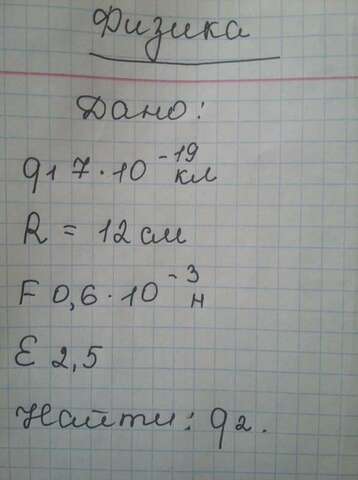 Физика
Дано:
q1 7·10⁻¹⁹ кл
R = 12 см
F 0,6·10⁻³ н
Ɛ 2,5
Найти: q2.